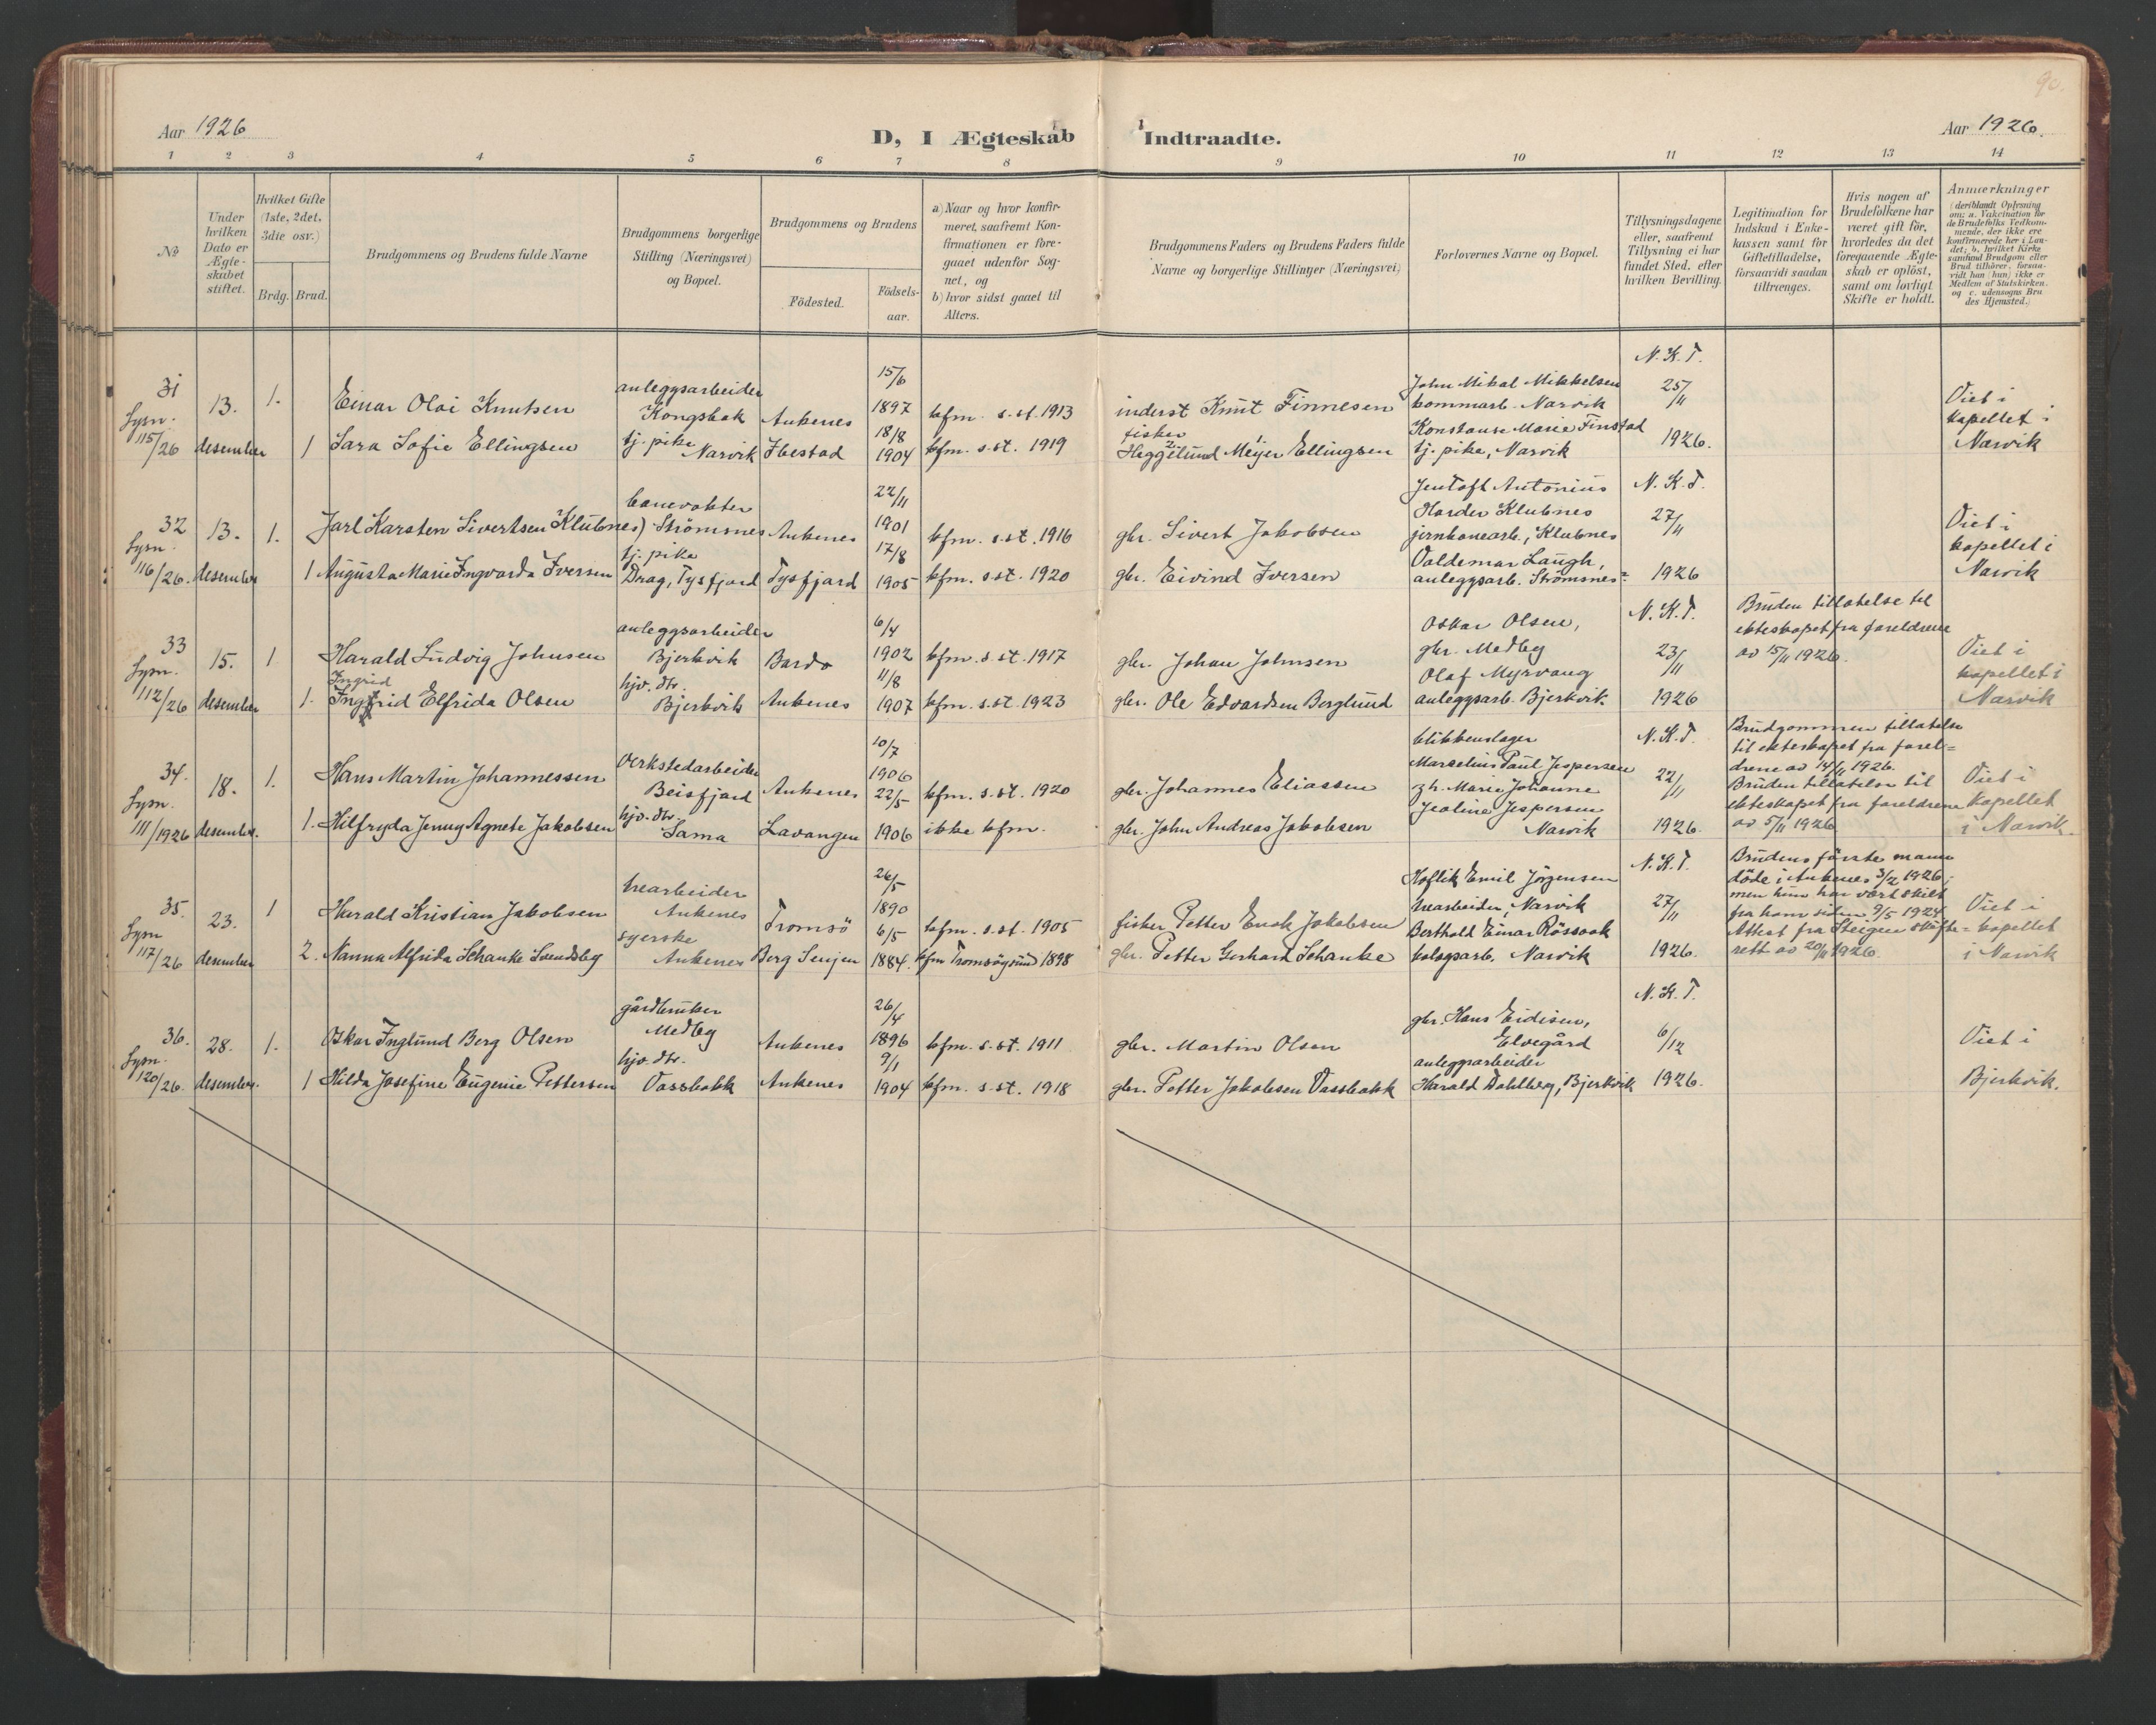 90.
Aar 1926
D, I Ægteskab Indtraadte.
Aar 1926.
1 2 3 4 5 6 7 8 9 10 11 12 13 14
№
Under hvilken Dato er Ægte-skabet stiftet.
Hvilket Gifte (1ste, 2det, 3die osv.)
Brdg. Brud.
Brudgommens og Brudens fulde Navne
Brudgommens borgerlige Stilling (Næringsvei) og Bopæl.
Brudgommens og Brudens
Födested.
Födsels-aar.
a) Naar og hvor konfir-meret, saafremt Kon-firmationen er fore-gaaet udenfor Sog-net, og
b) hvor sidst gaaet til Alters.
Brudgommens Faders og Brudens Faders fulde Navne og borgerlige Stillinger (Næringsvei)
Forlovernes Navne og Bopæl.
Tillysningsdagene eller, saafremt Tillysning ei har fundet Sted, efter hvilken Bevilling.
Legitimation for Indskud i Enke-kassen samt for Giftetilladelse, forsaavidt saadan tiltrænges.
Hvis nogen af Brudefolkene har været gift för, hvorledes da det foregaaende Ægte-skab er oplöst, samt om lovligt Skifte er holdt.
Anmærkninger (deriblandt Oplysning om: a. Vakcination for de Brudefolks Vedkom-mende, der ikke ere konfirmerede her i Lan-det; b. hvilket Kirke-samfund Brudgom eller Brud tilhörer, forsaa-vidt han (hun) ikke er Medlem af Statskirken. og c. udensogns Bru-des Hjemsted.)
31 Lysn. 115/26
13. desember
1.
1
Einar Olai Knutsen
Sara Sofie Ellingsen
anleggsarbeider
Kongsbak
tj. pike
Narvik
Ankenes
Ibestad
15/6 1897
18/8 1904
kfm. s.st. 1913
kfm. s.st. 1919
inderst Knut Finnesen
fisker
Heggelund Meyer Ellingsen
John Mikal Mikkelsen
kommarb. Narvik
Konstanse Marie Finstad
tj. pike, Narvik
N. K. T.
25/11
1926.
Viet i
kapellet i
Narvik
32 Lysn. 116/26.
13. desember
1.
1
Jarl Karsten Sivertsen Klubnes)
Augusta Marie Ingvarda Iversen
banevokter
Strömsnes
tj. pike
Drag, Tysfjord
Ankenes
Tysfjord
22/11 1901
17/8 1905
kfm. s.st. 1916
kfm. s.st. 1920
gbr. Sivert Jakobsen
gbr. Eivind Iversen
Jentoft Antonius
Harder Klubnes
jernbanearb., Klubnes
Valdemar Laugh,
anleggsarb. Strömsnes
N. K. T.
27/11
1926
Viet i
kapellet i
Narvik
33 Lysn. 112/26
15. desember
1
1.
Harald Ludvig Johnsen
Ingrid
Ingfrid Elfrida Olsen
anleggsarbeider
Bjerkvik
hjv. dtr.
Bjerkvik
Bardo
Ankenes
6/4 1902
11/8 1907
kfm. s.st. 1917
kfm. s.st. 1923
gbr. Johan Johnsen
gbr. Ole Edvardsen Berglund
Oskar Olsen,
gbr. Medby
Olaf Myrvang
anleggsarb. Bjerkvik.
N. K. T.
23/11
1926
Bruden tillatelse til
ekteskapet fra foreldrene
av 15/11 1926.
Viet i
kapellet i
Narvik
34. Lysn. 111/1926
18. desember.
1.
1.
Hans Martin Johannessen
Hilfryda Jenny Agnete Jakobsen
verkstedarbeider
Beisfjord
hjv. dtr.
Sama
Ankenes
Lavangen
10/7 1906
22/5 1906
kfm. s.st. 1920
ikke kfm.
gbr. Johannes Eliassen
gbr. John Andreas Jakobsen
blikkenslager
Marselius Paul Jespersen
og h. Marie Johanne
Jeoline Jespersen
Narvik
N. K. T.
22/11
1926.
Brudgommen tillatelse
til ekteskapet fra forel=
drene av 14/11 1926.
Bruden tillatelse til
ekteskapet fra foreldrene
av 5/11 1926
Viet i
kapellet
i Narvik.
35. Lysn 117/26
23. desember
1
2.
Harald Kristian Jakobsen
Nanna Alfrida Schanke Svendsby
trearbeider
Ankenes
syerske
Ankenes
Tromsö
Berg Senjen
26/5 1890
6/5 1884.
kfm. s.st. 1905
kfm Tromsösund 1898
fisker Petter Enok Jakobsen
gbr. Petter Gerhard Schanke
Hoflik Emil Jörgensen
trearbeider, Narvik
Berthold Einar Rössvok
bolagsarb. Narvik
N. K. T.
27/11
1926.
Brudens förste mann
döde i Ankenes 3/2 1926,
men hun har vært skilt
fra ham siden 9/5 1924
Attest fra Steigen skifte=
rett av 20/11 1926.
Viet i
kapellet
i Narvik
36. Lysn. 120/26.
28. desember.
1.
1
Oskar Inglund Berg Olsen
Hilda Josefine Eugenie Pettersen
gårdbruker
Medby
hjv. dtr.
Vassbakk
Ankenes
Ankenes
26/4 1896
9/1 1904
kfm. s.st. 1911
kfm. s.st. 1918
gbr. Martin Olsen
gbr. Petter Jakobsen Vassbakk
gbr. Hans Eidisen,
Elvegård
anleggsarbeider
Harald Dahlberg, Bjerkvik
N. K. T.
6/12
1926.
Viet i
Bjerkvik.